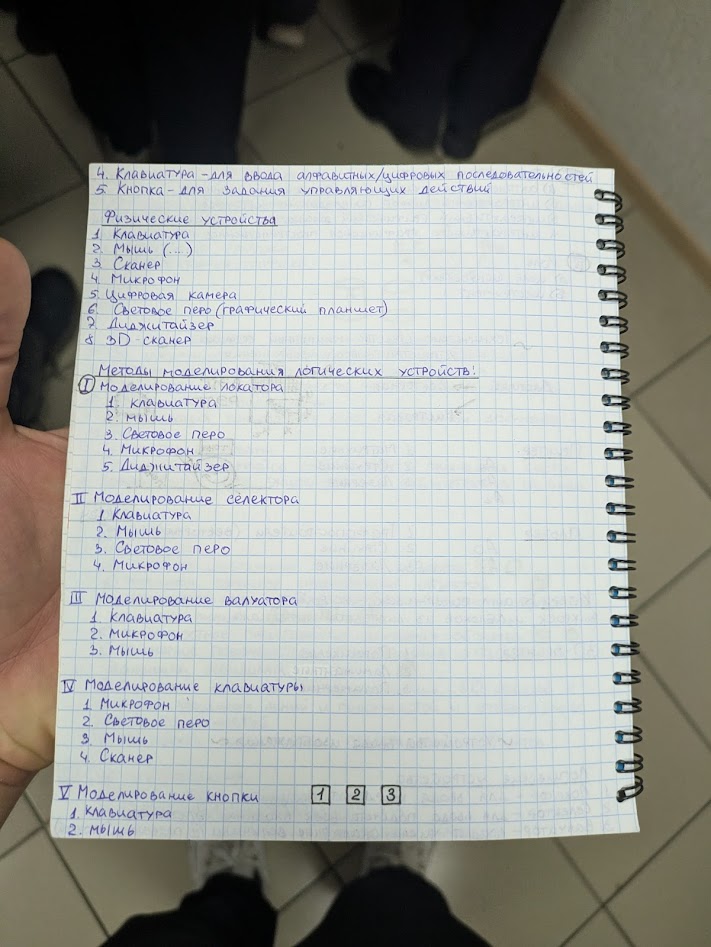 4. Клавиатура - для ввода алфавитных/цифровых последовательностей
5. Кнопка - для задания управляющих действий
Физические устройства
1. Клавиатура
2. Мышь (...)
3. Сканер
4. Микрофон
5. Цифровая камера
6. Световое перо (графический планшет)
7. Диджитайзер
8. 3D-сканер
Методы моделирования логических устройств:
I Моделирование локатора
1. Клавиатура
2. Мышь
3. Световое перо
4. Микрофон
5. Диджитайзер
II Моделирование селектора
1. Клавиатура
2. Мышь
3. Световое перо
4. Микрофон
III Моделирование валуатора
1. Клавиатура
2. Микрофон
3. Мышь
IV Моделирование клавиатуры
1. Микрофон
2. Световое перо
3. Мышь
4. Сканер
V Моделирование кнопки 1 2 3
1. Клавиатура
2. Мышь